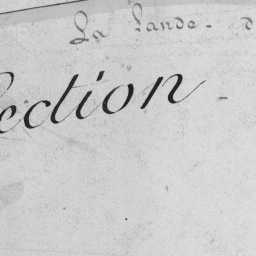 La lande - d
ection -